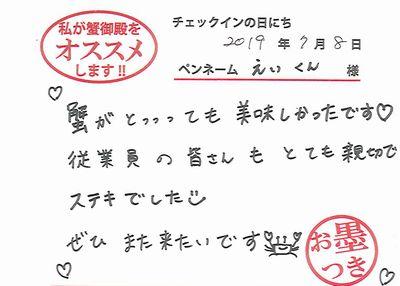 私が蟹御殿を
オススメ
します!!
チェックインの日にち
2019 年 7月 8日
ペンネーム えい くん 様
蟹が とっっっても 美味しかったです♡
従業員 の 皆さん も とても 親切で
ステキ でした
ぜひ また 来たいです
お墨
つき